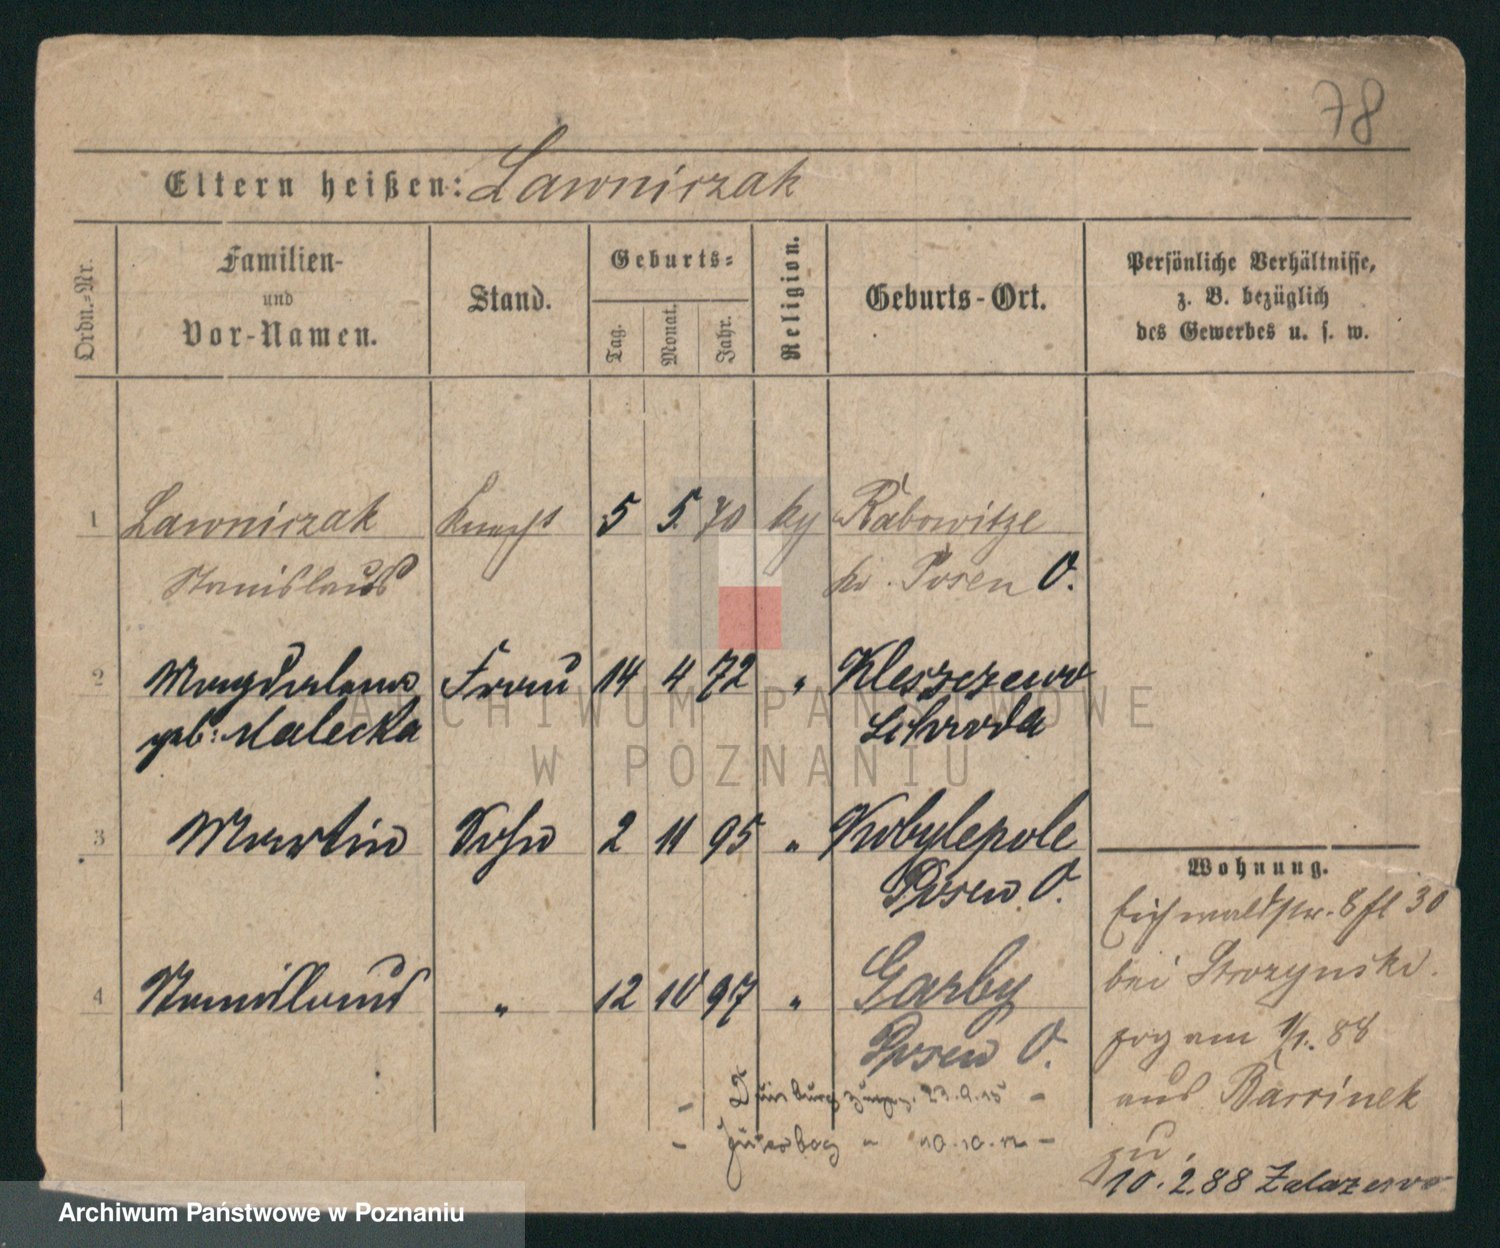 78
Eltern heißen: Lawniczak
Ordn.-Nr.
Familien-
und
Vor-Namen.
Stand.
Geburts-
Tag.
Monat.
Jahr.
Religion.
Geburts-Ort.
Persönliche Verhältnisse,
z. B. bezüglich
des Gewerbes u. s. w.
1 Lawniczak Knecht 5 5. 70 Rabowitze
Stanislaus Posen O.
2 Magdalena Frau 14 4 72 " Kleszczewo
geb. Malecka Schroda
3 Martin Sohn 2 11 95 " Kobylepole
Posen O.
4 Stanislaus " 12 10 97 " Garby
Posen O.
- Duisburg 23.9.15 -
- Jüterbog " 10.10.
Wohnung.
Eichwaldstr. 8 fl 30
bei Strozynski.
zog am 1/1. 88
aus Barcinek
zu.
10. 2. 88 Zalazewo
ARCHIWUM PAŃSTWOWE
W POZNANIU
Archiwum Państwowe w Poznaniu